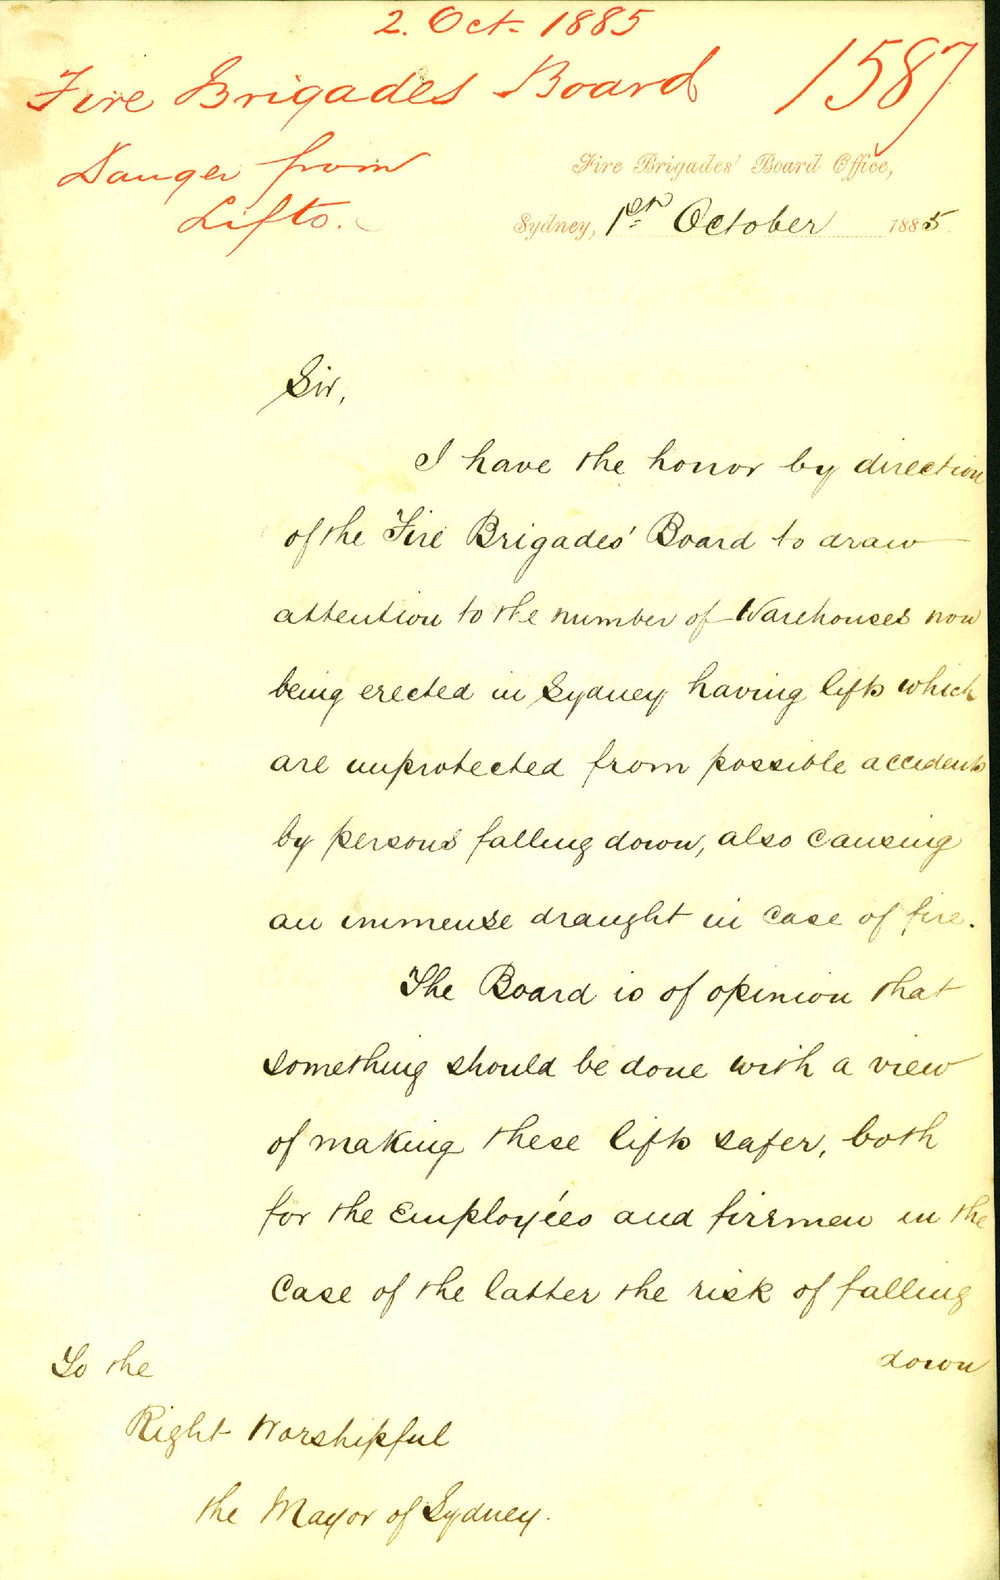 2. Oct. 1885
Fire Brigades Board 1587
Danger from
Lifts.
Fire Brigades' Board Office,
Sydney, 1st October 1885.
Sir,
I have the honor by direction
of the Fire Brigades' Board to draw
attention to the number of Warehouses now
being erected in Sydney having lifts which
are unprotected from possible accidents
by persons falling down, also causing
an immense draught in case of fire.
The Board is of opinion that
something should be done with a view
of making these lifts safer, both
for the Employées and firemen in the
case of the latter the risk of falling
down
To the
Right Worshipful
the Mayor of Sydney.